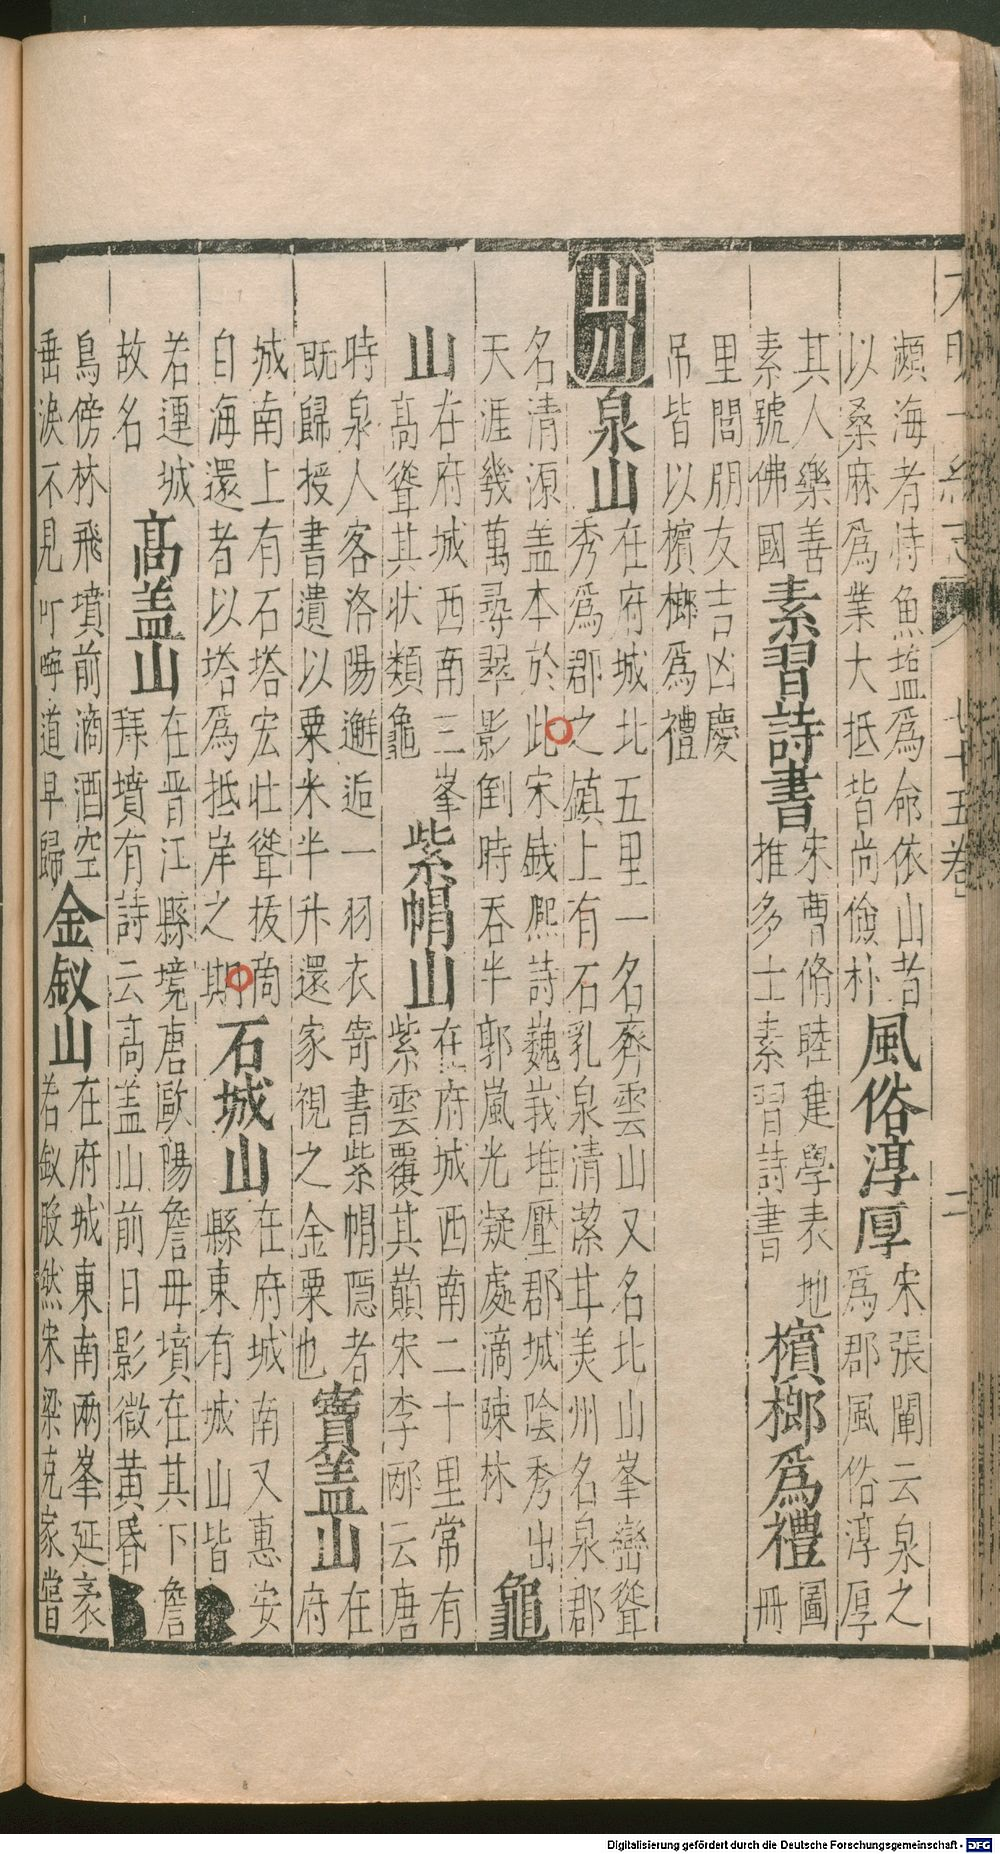 瀕海者恃魚鹽爲命依山者風俗淳厚宋張闡云泉之
以桑麻爲業大抵皆尚儉朴爲郡風俗淳厚
其人樂善素習詩書宋曹脩睦建學表地檳榔爲禮圖
素號佛國推多士素習詩書冊
里閭朋友吉凶慶
吊皆以檳榔爲禮
山川泉山在府城北五里一名齊雲山又名北山峯巒聳
秀爲郡之鎮上有石乳泉清潔甘美州名泉郡
名清源盖本於此宋錢熙詩巍峩堆壓郡城陰秀出
天涯幾萬尋翠影倒時吞半郭嵐光凝處滴疎林龜
山在府城西南三峯紫帽山在府城西南二十里常有
高聳其狀類龜紫雲覆其巔宋李邴云唐
時泉人客洛陽邂逅一羽衣寄書紫帽隱者寶盖山在
既歸授書遺以粟米半升還家視之金粟也府
城南上有石塔宏壯聳拔商石城山在府城南又惠安
自海還者以塔爲抵岸之期縣東有城山皆
若連城高盖山在晉江縣境唐歐陽詹毋墳在其下詹
故名拜墳有詩云高盖山前日影微黃昏
鳥傍林飛墳前滴酒空金釵山在府城東南兩峯延袤
垂淚不見叮嚀道早歸若釵股然宋梁克家嘗
七十五卷
二
Digitalisierung gefördert durch die Deutsche Forschungsgemeinschaft - DFG